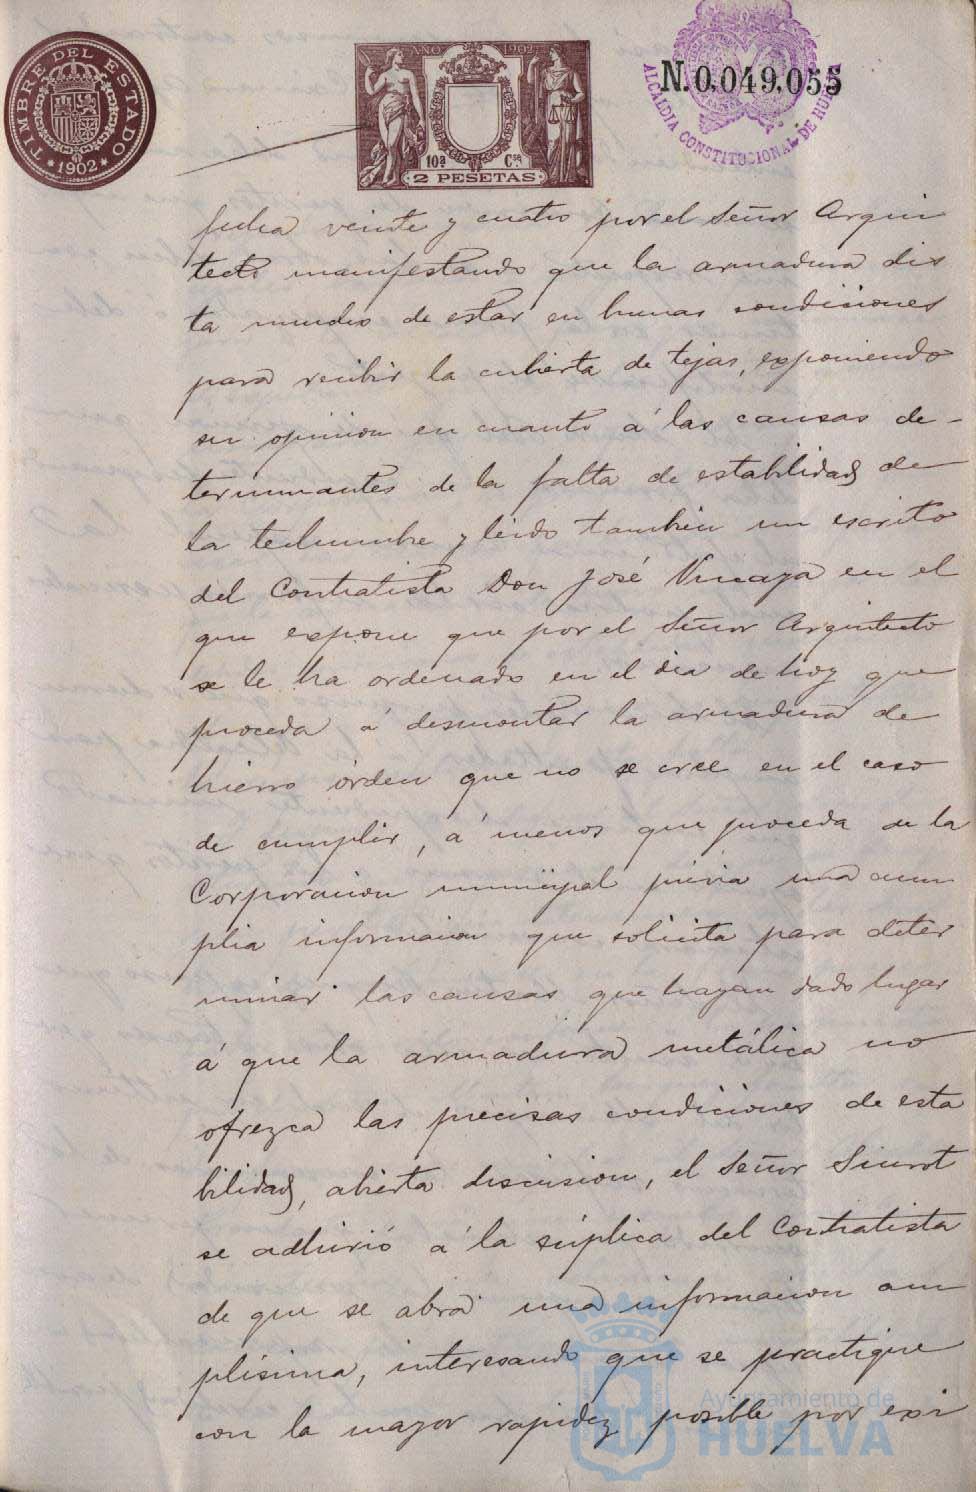 TIMBRE DEL ESTADO
*1902*
AÑO 1902
10ª Cse
2 PESETAS
N. 0,049,055
ALCALDIA CONSTITUCIONAL DE HUELVA
fecha veinte y cuatro por el Señor Arqui
tecto manifestando que la armadura dis
ta mucho de estar en buenas condiciones
para recibir la cubierta de tejas, exponiendo
su opinion en cuanto á las causas de-
terminantes de la falta de estabilidad de
la techumbre y leido tambien un escrito
del Contratista Don José Vizcaya en el
que expone que por el Señor Arquitecto
se le ha ordenado en el dia de hoy que
proceda á desmontar la armadura de
hierro órden que no se cree en el caso
de cumplir, á menos que proceda de la
Corporacion municipal prévia una am
plia informacion que solicita para deter
minar las causas que hayan dado lugar
á que la armadura metálica no
ofrezca las precisas condiciones de esta
bilidad, abierta discusion, el Señor Siurot
se adhirió á la súplica del Contratista
de que se abra una informacion am
plísima, interesando que se practique
con la mayor rapidez posible por exi
Ayuntamiento de
HUELVA